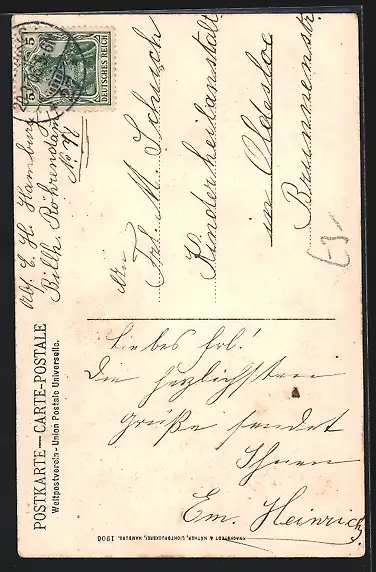 POSTKARTE — CARTE-POSTALE
Weltpostverein - Union Postale Universelle.
DEUTSCHES REICH
5 5
Abs. E. H. Hamburg
Billh. Röhrendamm
An
Frl. M. Schuch
Kinderheilanstalt
in Oldesloe
Brunnenstr
Liebes Frl!
Die herzlichsten
Grüße sendet
Ihnen
Em. Heinrich.
KNACKSTEDT & NÄTHER, LICHTDRUCKEREI, HAMBURG. 1906